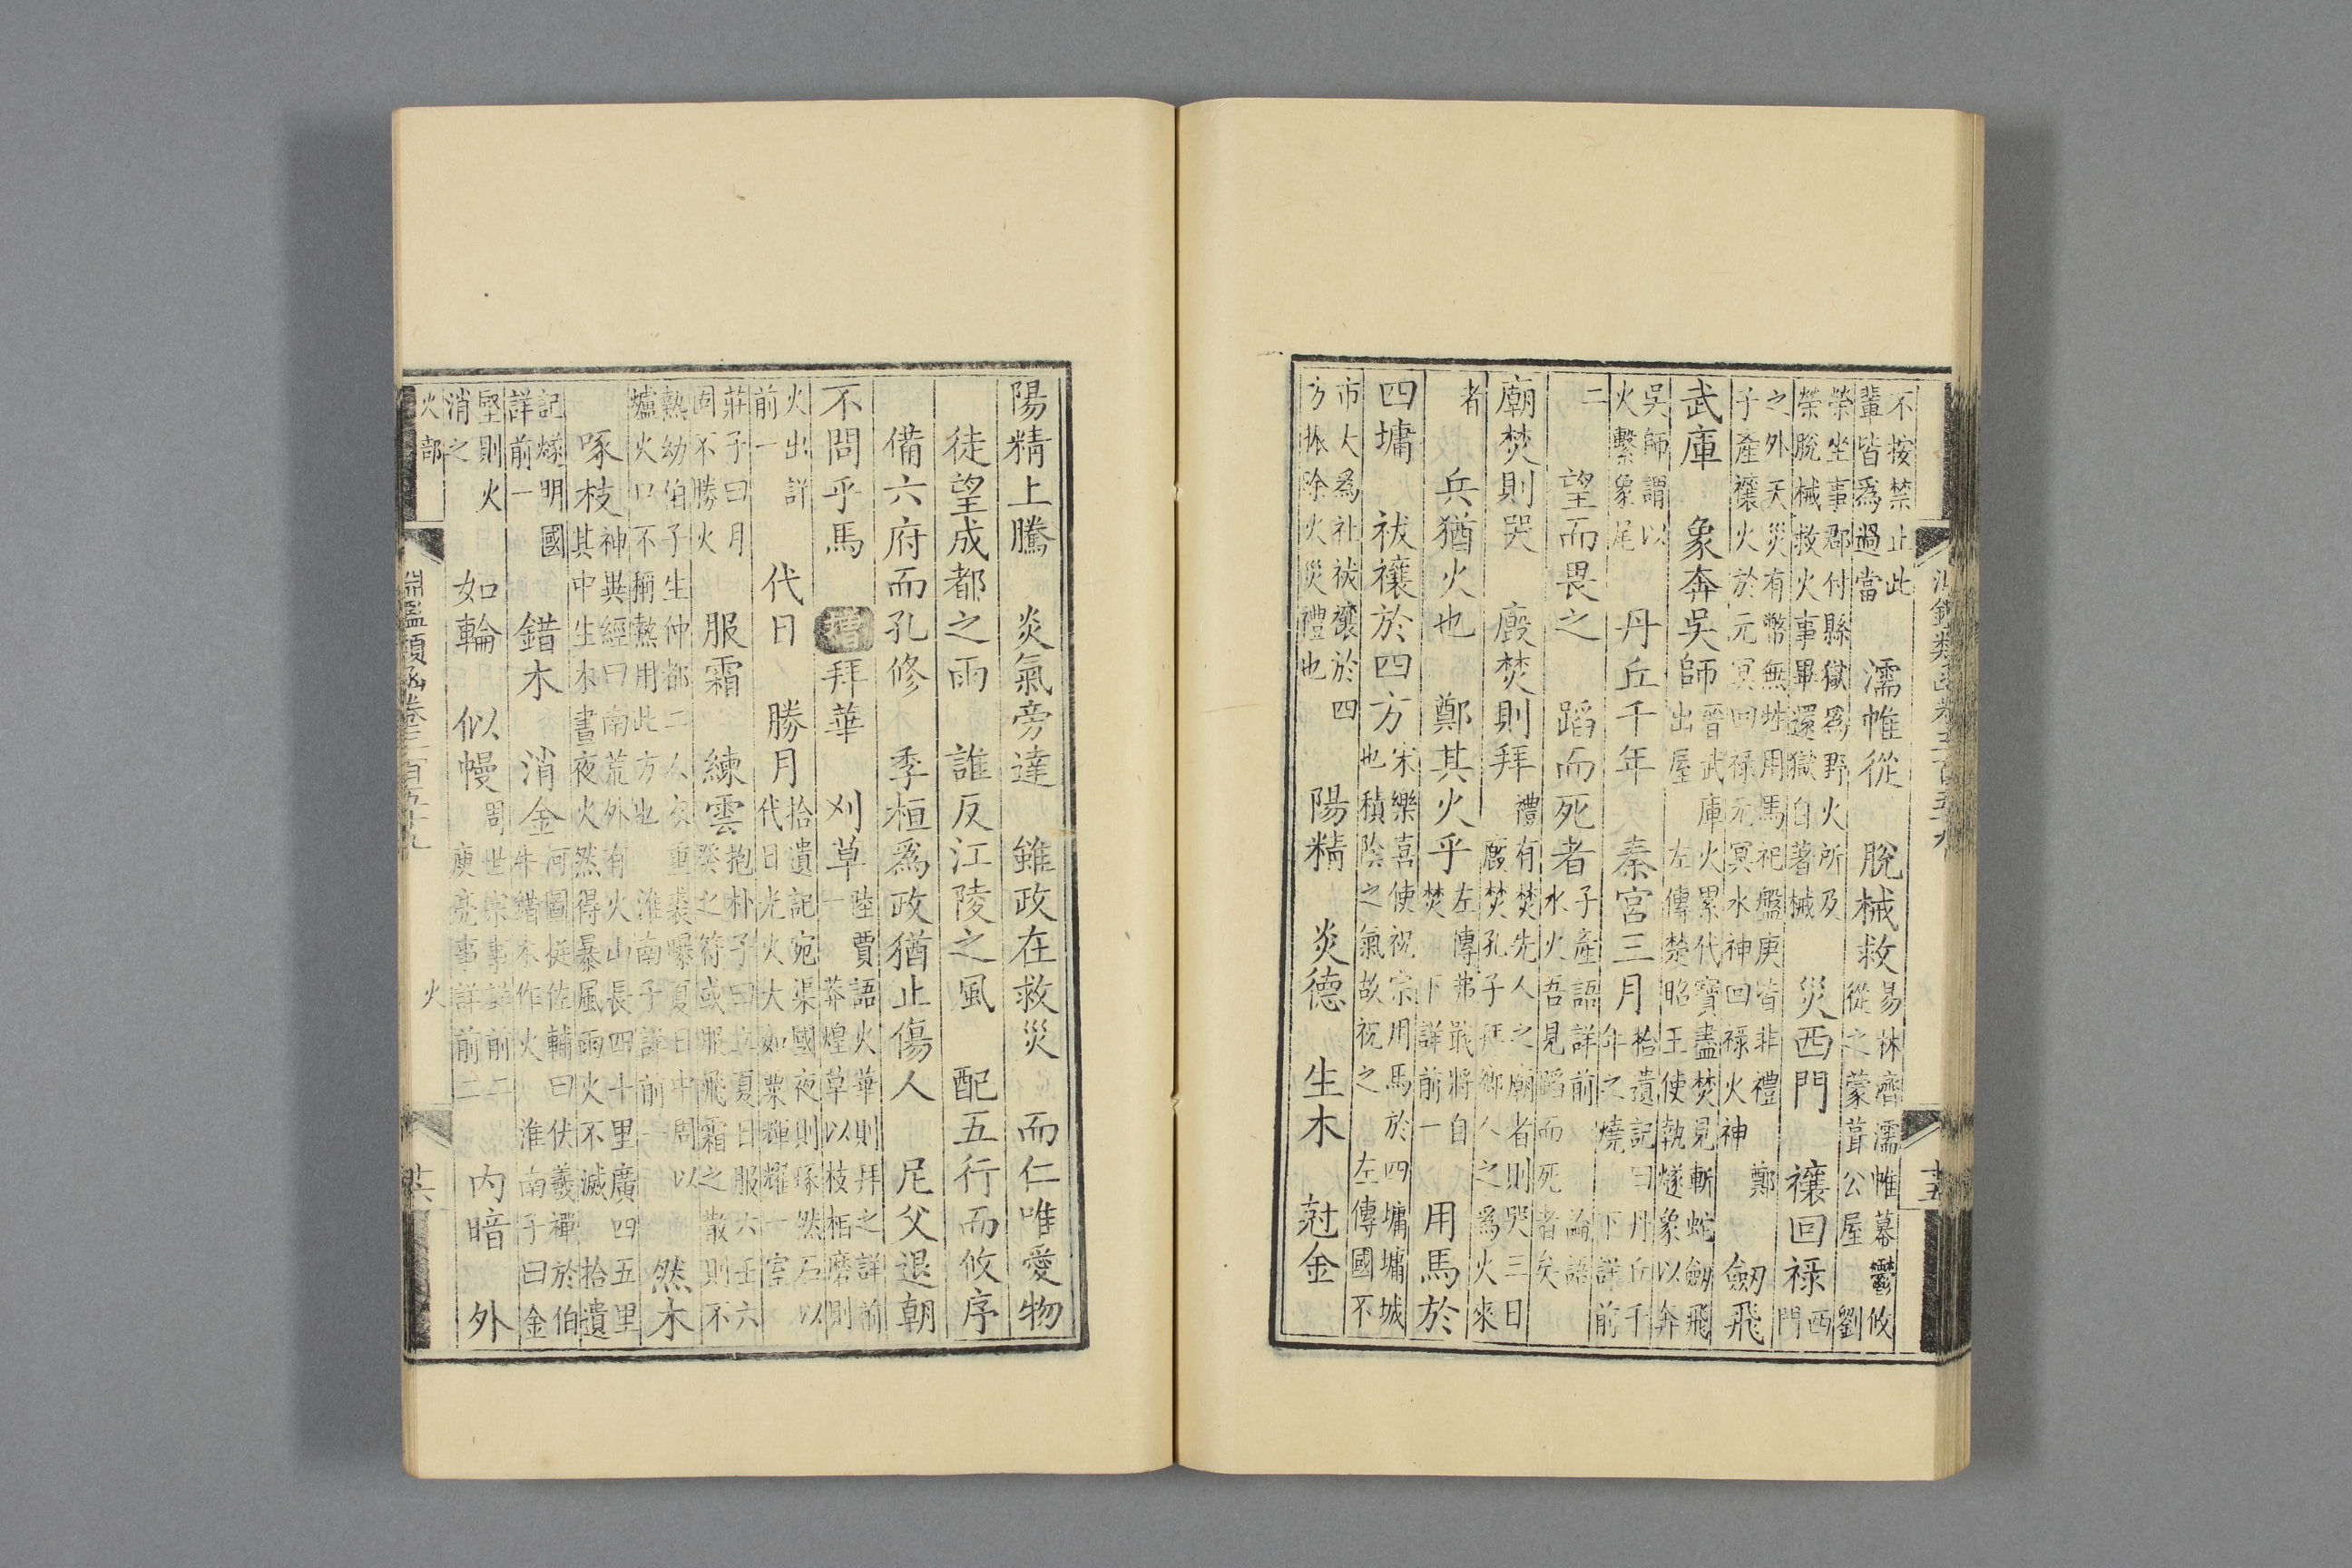 淵鑑類函卷三百五十九 十五
不按禁止此
輩皆爲過當 濡帷從 脫械救 易林濟濡帷幕鬱攸
從之蒙葺公屋 劉
榮坐事郡付縣獄爲野火所及
榮脫械救火事畢還獄自著械 災西門 禳回祿 西
門
之外天災有幣無牲用馬祀盤庚皆非禮 鄭
子產禳火於元冥回祿元冥水神回祿火神 劒飛
武庫 象奔吳師 晉武庫火累代寶盡焚見斬蛇劒飛
出屋 左傳楚昭王使執燧象以奔
吳師謂以
火繫象尾 丹丘千年 秦宮三月 拾遺記曰丹丘千
年之燒 下詳前
二 望而畏之 蹈而死者 子產語詳前 論語
水火吾見蹈而死者矣
廟焚則哭 廄焚則拜 禮有焚先人之廟者則哭三日
廄焚孔子拜鄉人之爲火來
者 兵猶火也 鄭其火乎 左傳弗戢將自
焚 下詳前一 用馬於
四墉 祓禳於四方 宋樂喜使祝宗用馬於四墉墉城
也積陰之氣故祝之 左傳國不
市大爲社祓禳於四
方振除火災禮也 陽精 炎德 生木 尅金
陽精上騰 炎氣旁達 雖政在救災 而仁唯愛物
徒望成都之雨 誰反江陵之風 配五行而攸序
備六府而孔修 季桓爲政猶止傷人 尼父退朝
不問乎馬 增 拜華 刈草 陸賈語火華則拜之詳前
一 莽煌草以枝柘磨則
火出詳
前一 代日 勝月 拾遺記宛渠國夜則琢然石以
代日光火大如粟輝耀一室
莊子曰月
固不勝火 服霜 練雲 抱朴子曰立夏日服六壬六
癸之符或服飛霜之散則不
熱幼伯子王仲都二人衣重裘曝夏日中周以
爐火口不稱熱用此方也 淮南子詳前一 然木
啄枝 神異經曰南荒外有火山長四十里廣四五里
其中生木晝夜火然得暴風雨火不滅 拾遺
記燧明國
詳前一 錯木 消金 河圖挺佐輔曰伏羲禪於伯
牛錯木作火 淮南子曰金
堅則火
消之 如輪 似幔 周世宗事詳前二
庾亮事詳前二 內暗 外
火部 淵鑑類函卷三百五十九 火 十六